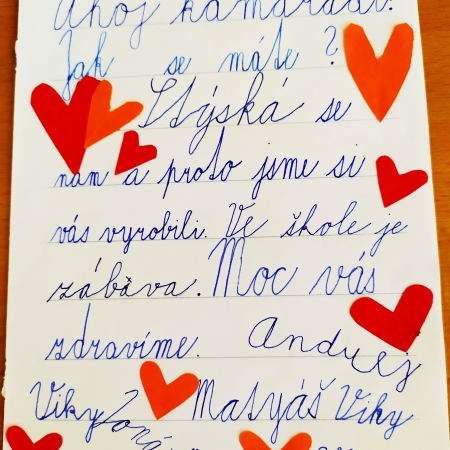 Ahoj kamarádi.
Jak se máte?
Stýská se
nám a proto jsme si
vás vyrobili. Ve škole je
zábava. Moc vás
zdravíme. Andrej
Viky Matyáš Viky